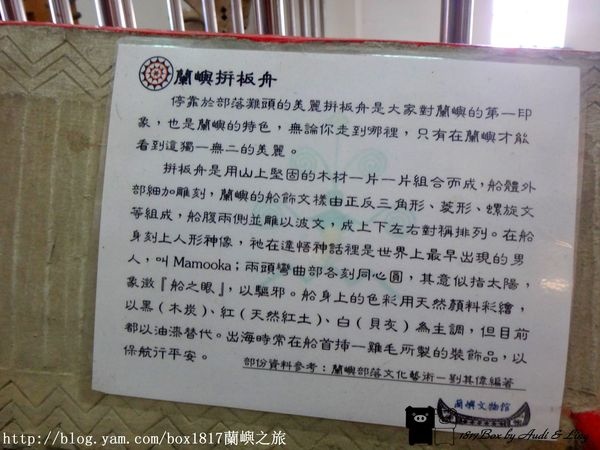 蘭嶼拚板舟
停靠於部落灘頭的美麗拚板舟是大家對蘭嶼的第一印
象,也是蘭嶼的特色,無論你走到哪裡,只有在蘭嶼才能
看到這獨一無二的美麗。
拚板舟是用山上堅固的木材一片一片組合而成,船體外
部細加雕刻,蘭嶼的船飾文樣由正反三角形、菱形、螺旋文
等組成,船腹兩側並雕以波文,成上下左右對稱排列。在船
身刻上人形神像,祂在達悟神話裡是世界上最早出現的男
人,叫Mamooka;兩頭彎曲部各刻同心圓,其意似指太陽,
象徵『船之眼』,以驅邪。船身上的色彩用天然顏料彩繪,
以黑(木炭)、紅(天然紅土)、白(貝灰)為主調,但目前
都以油漆替代。出海時常在船首揷一雞毛所製的裝飾品,以
保航行平安。
部份資料參考:蘭嶼部落文化藝術—劉其偉編著
蘭嶼文物館
1817Box by Audi & Lisy
http://blog.yam.com/box1817蘭嶼之旅